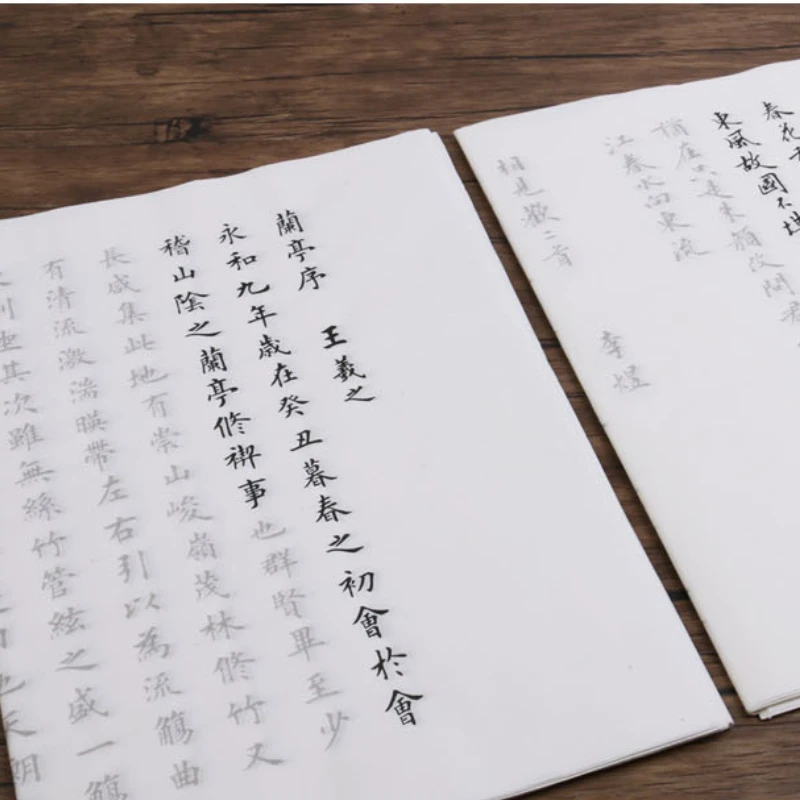 春花
東風故國不堪
猶在只是朱顏改問君
江春水向東流
相見歡二首
李煜
蘭亭序 王羲之
永和九年歲在癸丑暮春之初會於會
稽山陰之蘭亭修禊事也群賢畢至少
長咸集此地有崇山峻嶺茂林修竹又
有清流激湍暎帶左右引以為流觴曲
水列坐其次雖無絲竹管絃之盛一觴
也天朗